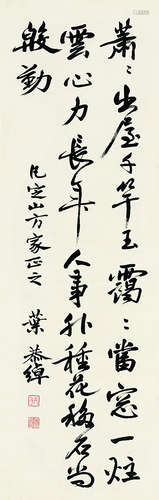 蕭〻出屋千竿玉靄〻當窓一炷
雲心力長年人事外種花移石尚
殷勤
定山方家正之
葉恭綽